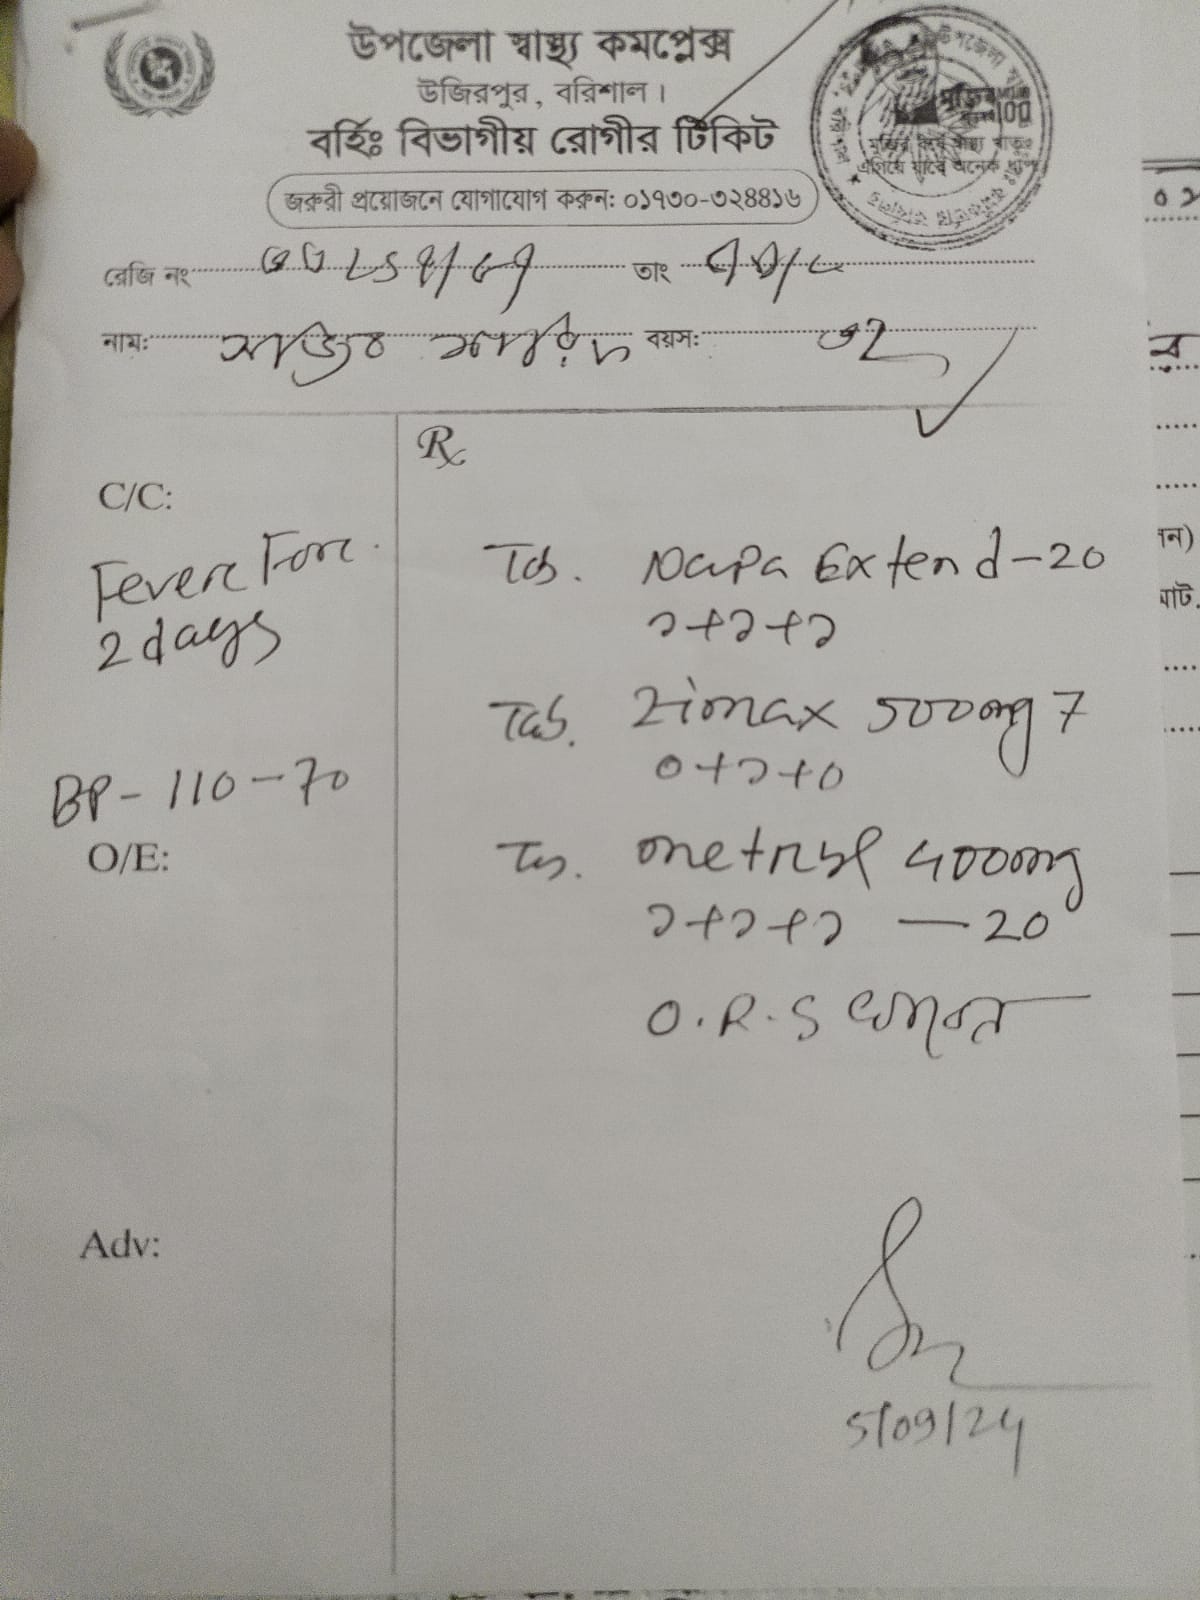 উপজেলা স্বাস্থ্য কমপ্লেক্স
উজিরপুর, বরিশাল।
বর্হিঃ বিভাগীয় রোগীর টিকিট
জরুরী প্রয়োজনে যোগাযোগ করুন: ০১৭৩০-৩২৪৪১৬
রেজি নং তাং
নাম: বয়স: ৩২
Rx
C/C:
Fever For
2 days
Tab. Napa Extend-20
১+১+১
Tab. Zimax 500mg 7
০+১+০
BP-110-70
O/E:
Tab. metryl 400mg
১+১+১ — 20
O.R.S
Adv:
5/09/24